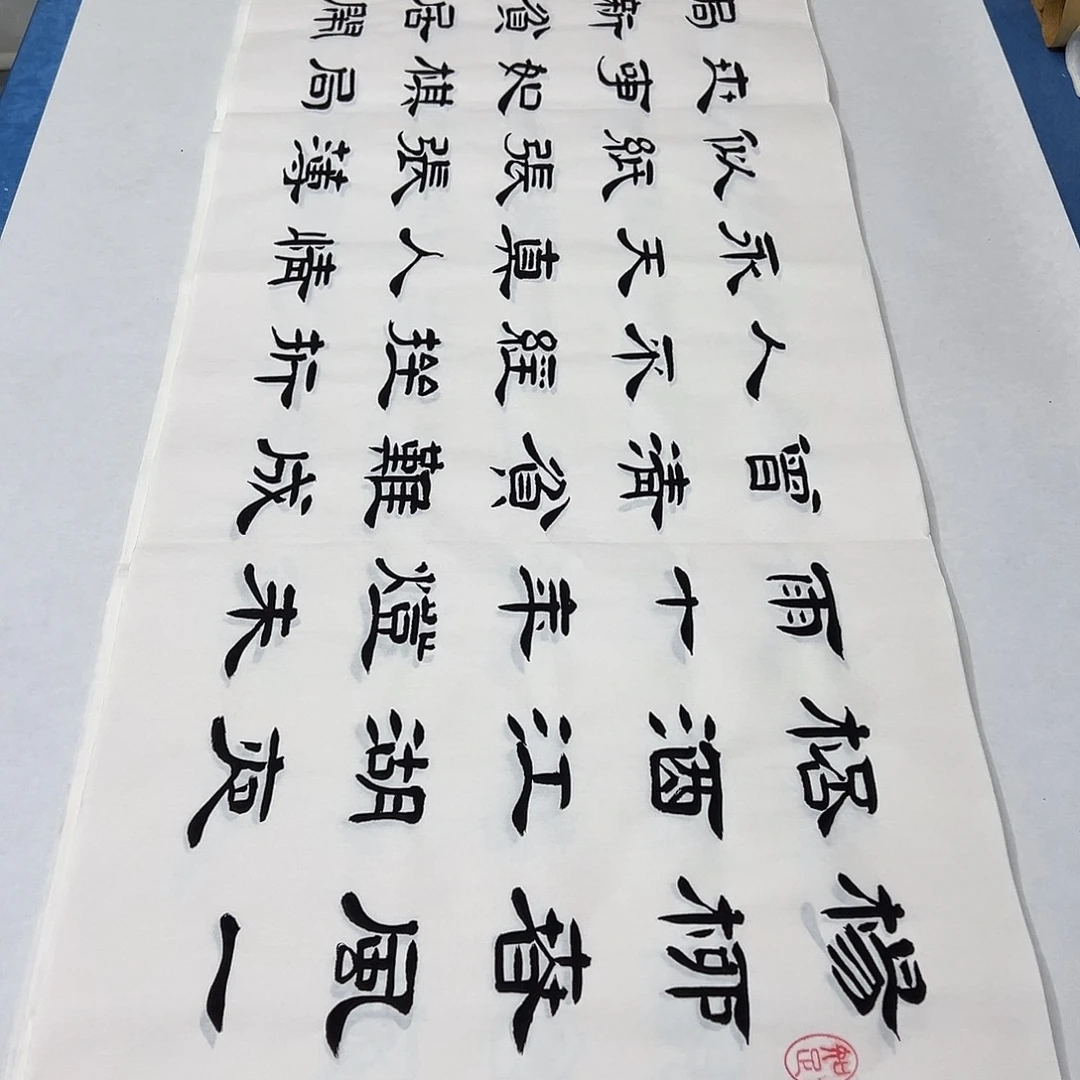 楊柳春風一
杯酒江湖夜
雨十年燈未
曾清貧難成
人不經挫折
永天真人情
似紙張張薄
世事如棋局
局新貧居鬧